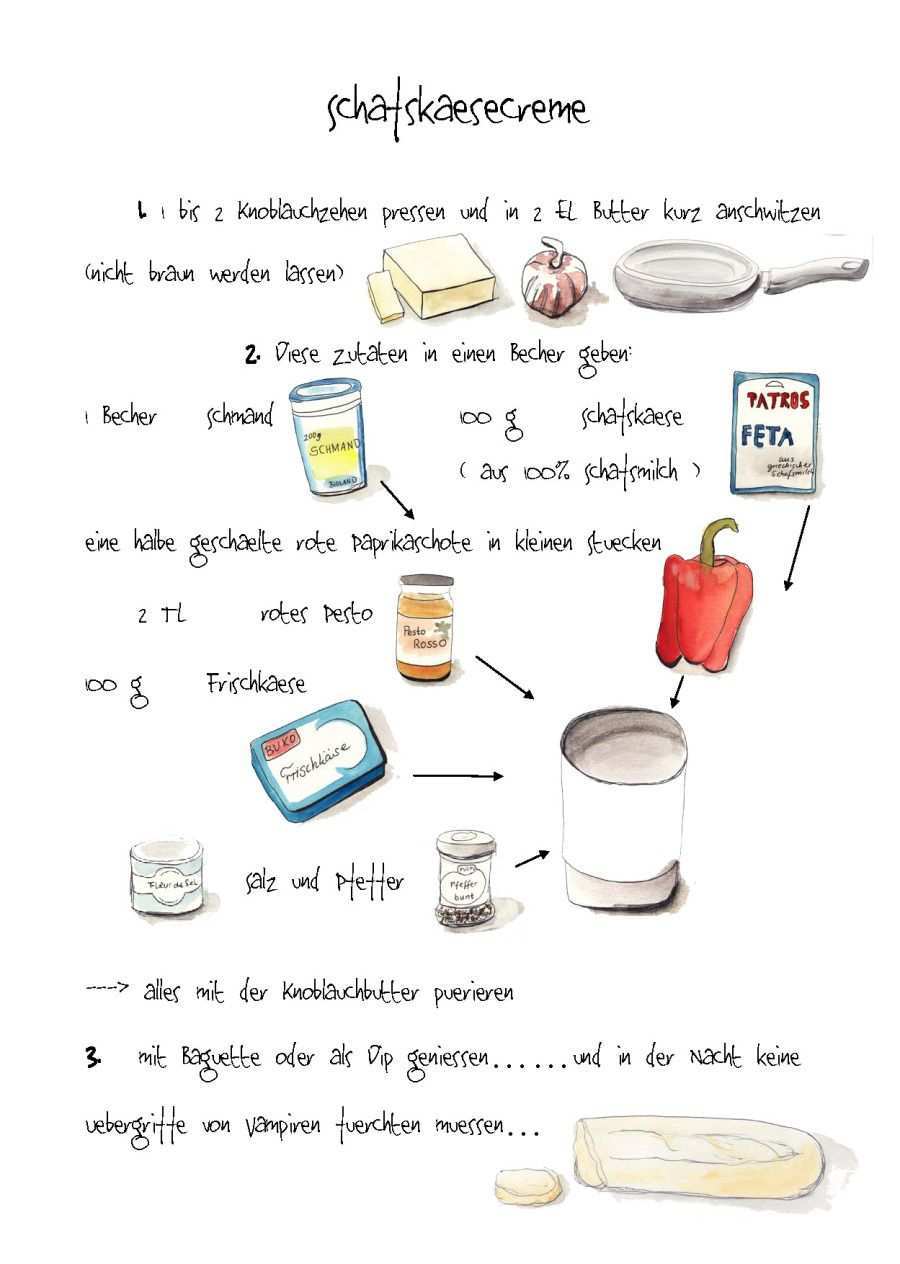 schafskaesecreme
1. 1 bis 2 Knoblauchzehen pressen und in 2 EL Butter kurz anschwitzen
(nicht braun werden lassen)
2. Diese Zutaten in einen Becher geben:
1 Becher schmand
200g
SCHMAND
BIOLAND
100 g schafskaese
( aus 100% schafsmilch )
PATROS
FETA
aus
griechischer
Schafsmilch
eine halbe geschaelte rote Paprikaschote in kleinen stuecken
2 TL rotes Pesto
Pesto
ROSSO
100 g Frischkaese
BUKO
Frischkäse
Fleur de Sel
salz und Pfeffer
Pfeffer
bunt
----> alles mit der Knoblauchbutter puerieren
3. mit Baguette oder als Dip geniessen......und in der Nacht keine
uebergriffe von Vampiren fuerchten muessen...